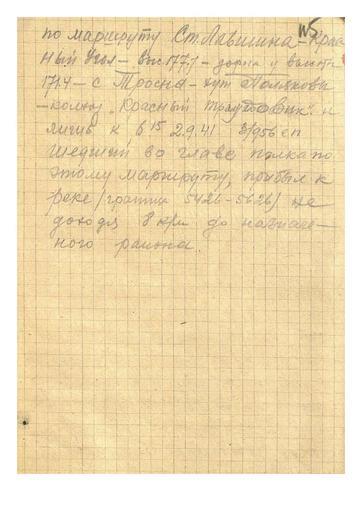 №5
по маршруту Ст. Лавшина – Крас-
ный Угол – выс. 177,1 – дорога у высоты
171,4 – с Тросна – хут Поляковы
– колхоз „Красный
к 6 15 2.9.41 3/956 сп
шедший во главе полка по
этому маршруту, прибыл к
реке /граница 5426–5626/ не
доходя 8 км до назначен-
ного района.